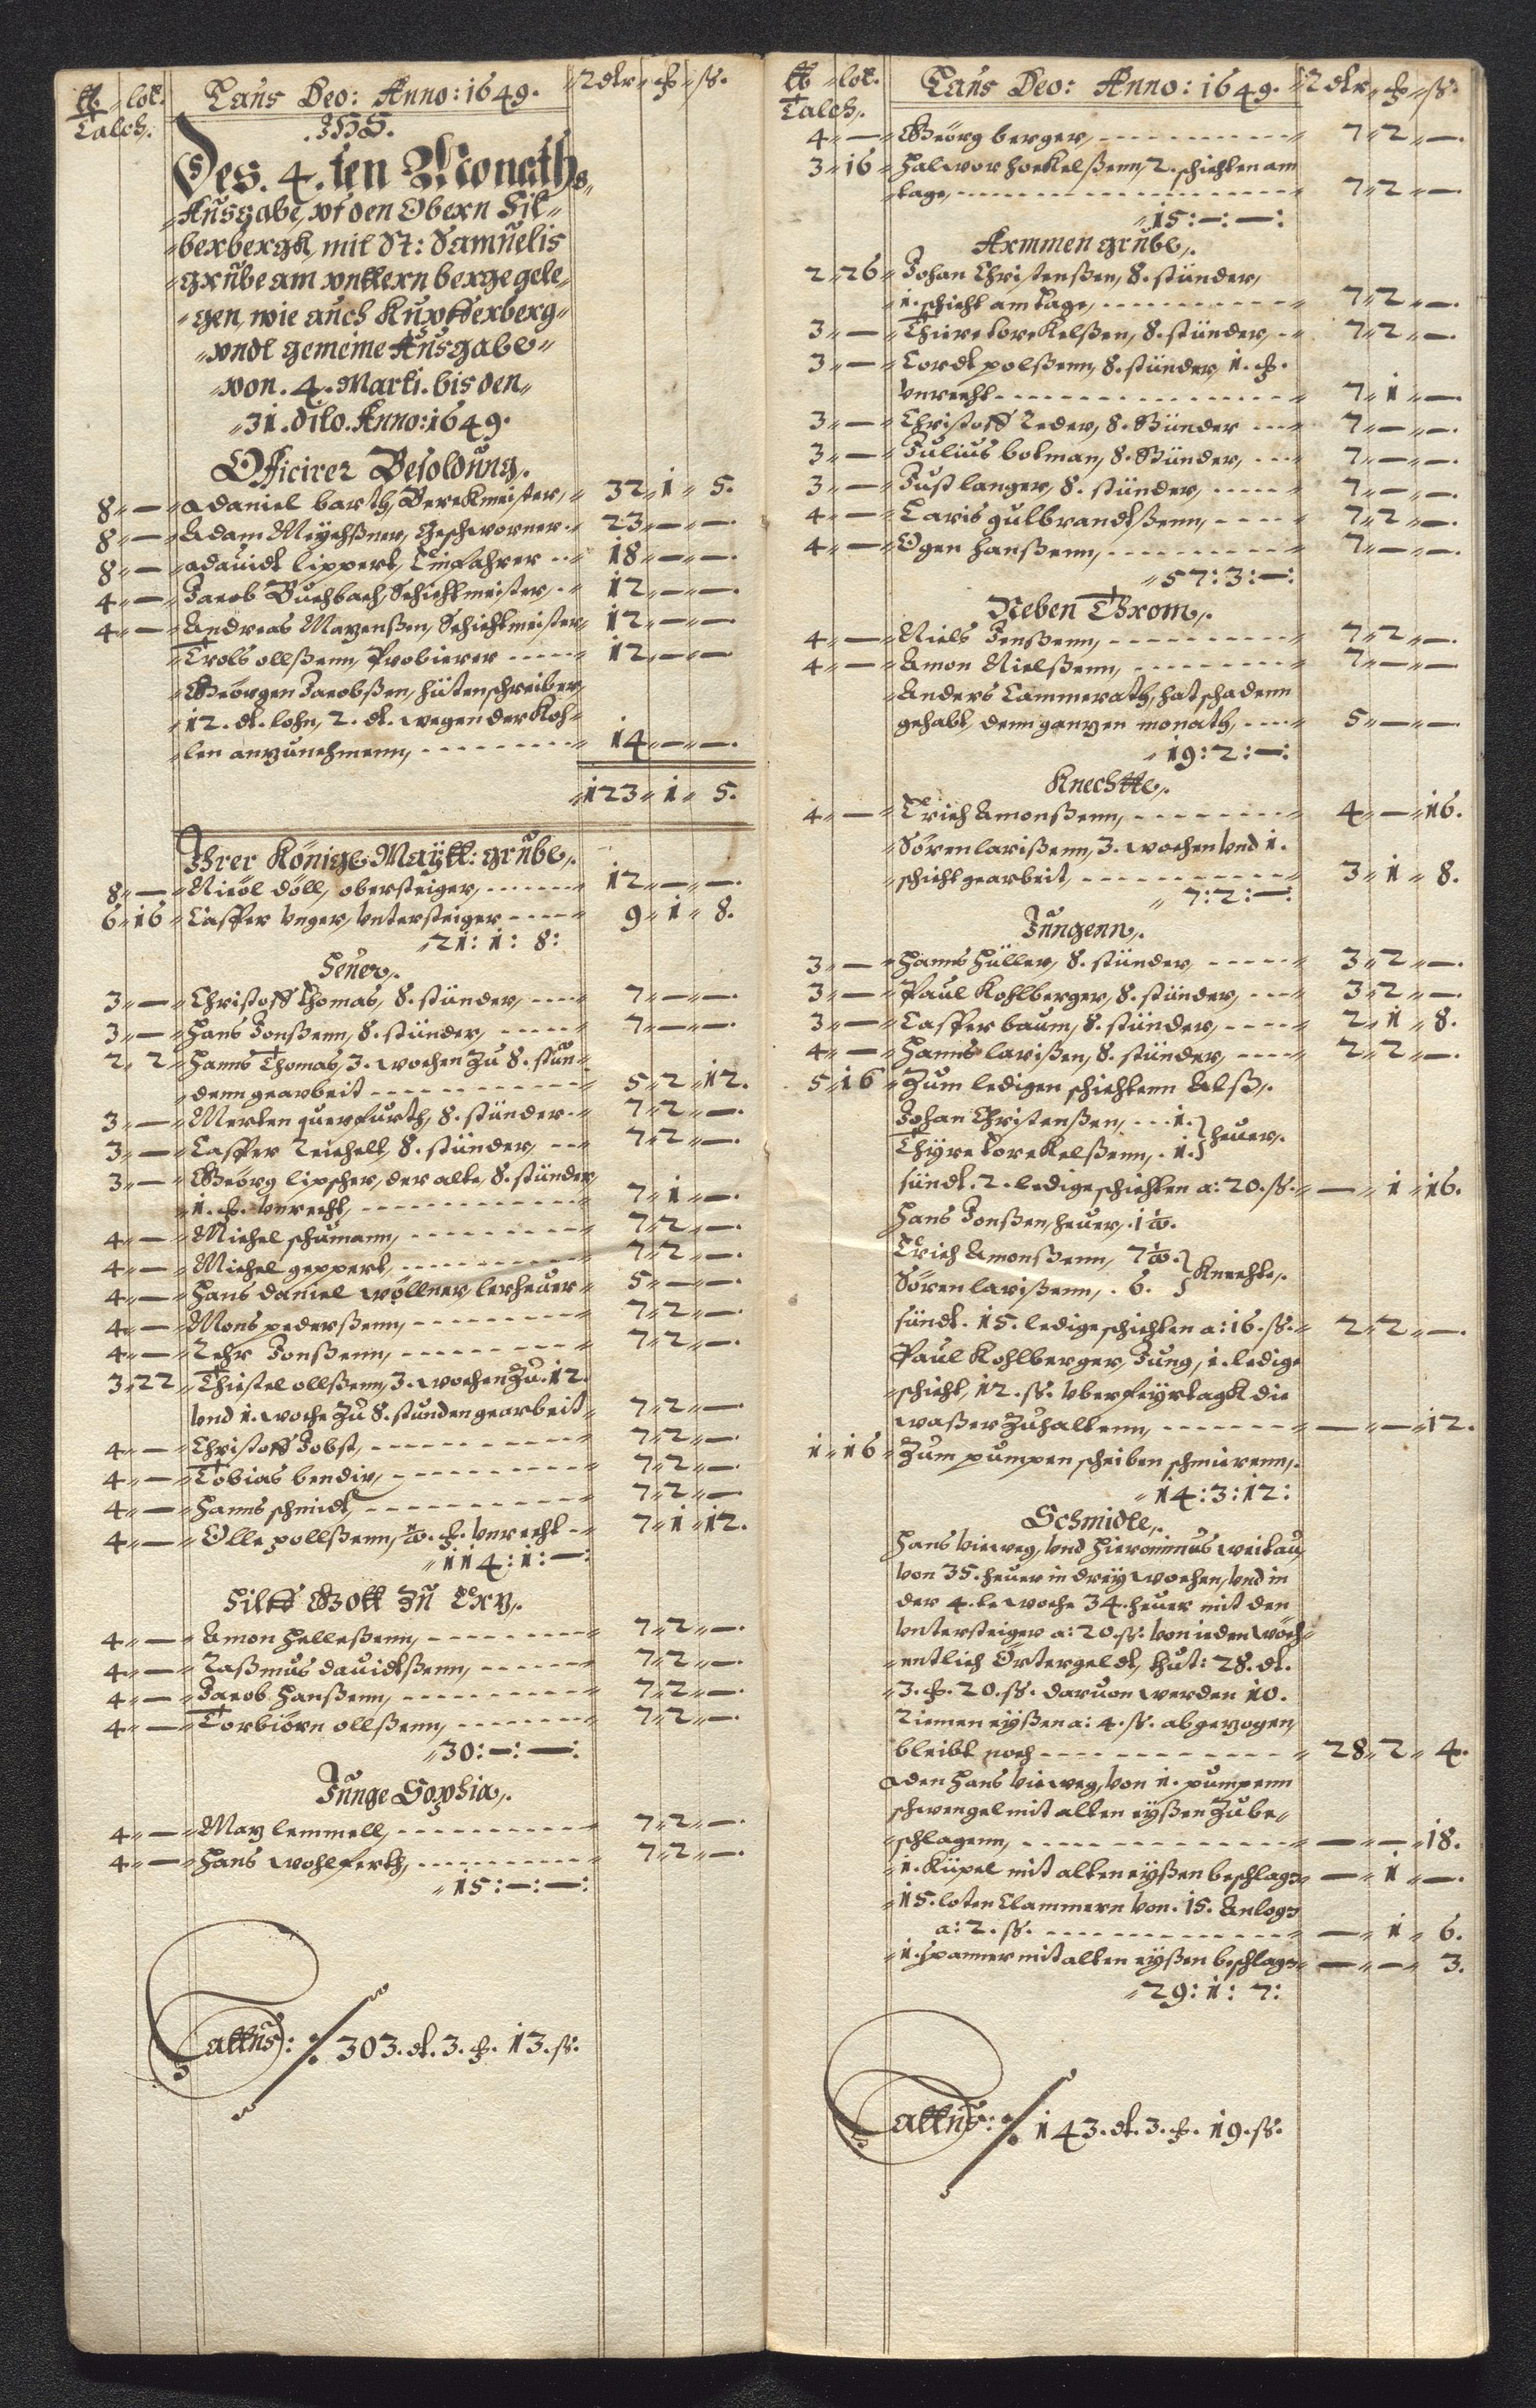 ℔ lot. Laus Deo: Anno: 1649. Rdtr ₰ ß.
Talch.
JHS.
Des. 4. ten Monaths
Ausgabe, vf den Obern Sil
berbergk, mit St: Samuelis
grube am vntern berge gele
gen, wie auch Kupfferberg
vndt gemeine Ausgabe
von. 4. Marti. bis den
31. dito. Anno: 1649.
Officirer Besoldung.
8 — Daniel barth, Berckmeister, 32 1 5.
8 — Adam Meychßner, Geschworner 23 — —.
8 — dauidt lippert, Einfahrer 18 — —.
4 — Jacob Buchbach, Schichtmeister, 12 — —.
4 — Andreas Mavenßen, Schichtmeister 12 — —.
Trols ollßenn, Probierer 12 — —
Geörgen Jacobßen, hütenschreiber,
12. dt. lohn, 2. dt. wegen der Koh
len anzunehmenn, 14 — —.
123 1 5.
Ihrer Königl. Maytt: grube,
8 — Nicöl döll, obersteiger, 12 — —.
6 16 Casper Vnger, Vntersteiger 9 1 8.
21: 1: 8:
Heuer,
3 — Christoff Thomas, 8. stünder, 7 — —.
3 — Hans Jonßenn, 8. stünder, 7 — —.
2 2 Hanns Thomas, 3. wochen zu 8. stun
denn gearbeit 5 2 12.
3 — Merten querfurth, 8. stünder 7 2 —.
3 — Casper Reichelt, 8. stünder, 7 2 —.
3 — Geörg lipscher, der alte, 8. stünder,
1. ₰. Vnrecht, 7 1 —.
4 — Michel schumann, 7 2 —.
4 — Michel geppert, 7 2 —.
4 — Hans daniel wöllner lerheuer 5 — —.
4 — Mons pederßenn, 7 2 —.
4 — Lehr Jonßenn, 7 2 —.
3 22 Thistel ollßenn, 3. wochen zu. 12.
Vnd 1. woche zu 8. stunden gearbeit 7 2 —.
4 — Christoff Jobst, 7 2 —.
4 — Tobias bendix, 7 2 —.
4 — Hanns schmidt, 7 2 —.
4 — Olle pollßenn, ½. ₰. Vnrecht 7 1 12.
114: 1: —:
Hilff Gott zu Erz,
4 — Amon Helleßenn, 7 2 —.
4 — Raßmus dauidtßenn, 7 2 —.
4 — Jacob Hanßenn, 7 2 —.
4 — Torbiörn ollßenn, 7 2 —.
30: —: —:
Junge Sophia,
4 — Max lemmell, 7 2 —.
4 — Hans wohlferth, 7 2 —.
15: —: —:
Lattus: 303. dt. 3. ₰. 13. ß.
℔ lot. Laus Deo: Anno: 1649. Rdtr ₰ ß.
Talch.
4 — Geörg berger, 7 2 —.
3 16 Halwor hoekelßenn, 2. schichten am
tage, 7 2 —.
15: —: —:
Armmen grube,
2 26 Johan Christenßen, 8. stünder,
1. schicht am tage, 7 2 —.
3 — Thüre torekelßen, 8. stünder, 7 2 —.
3 — Cordt polßenn, 8. stünder, 1. ₰.
Vnrecht 7 1 —.
3 — Christoff Leder, 8. stünder 7 — —.
3 — Julius botman, 8. stünder, 7 — —.
3 — Just langer, 8. stünder, 7 — —.
4 — Laris gulbrandtßenn, 7 2 —.
4 — Ogen Hanßenn, 7 — —.
57: 3: —:
Neben Throm,
4 — Niels Jenßenn, 7 2 —.
4 — Amon Nielßenn, 7 — —
Anders Cammerath, hat schadenn
gehabt, denn ganzen monath, 5 — —.
19: 2: —:
Knechtte,
4 — Erich Amonßenn, 4 — 16.
Sören larißenn, 3. wochen Vnd 1.
schicht gearbeit, 3 1 8.
7: 2: —:
Jungenn,
3 — Hanns Hüller, 8. stünder 3 2 —.
3 — Paul Kohlberger, 8. stünder, 3 2 —.
3 — Casper baum, 8. stünder, 2 1 8.
4 — Hanns larißen, 8. stünder, 2 2 —.
5 16 Zum ledigen schichtenn Alß,
Johan Christenßen, 1. } heuer,
Thyre torekelßenn, 1.
sündt. 2. ledige schichten a: 20. ß. — 1 16.
Hans Jonßen, heuer, 1 ½.
Erich Amonßenn, 7 ½. } Knecht,
Sören larißenn, 6.
sündt. 15. ledige schichten a: 16. ß. 2 2 —.
Paul Kohlberger, Jung, 1. ledige
schicht, 12. ß. Vber feyrtagk die
waßer zuhaltenn, — — 12.
1 16 Zum pumpen scheiben schmirenn,
14: 3: 12:
Schmidte,
Hans Vieweg, Vnd Hieronimus weitau,
Von 35. heuer in drey wochen, Vnd in
der 4. te woche 34. heuer mit den
Vntersteiger a: 20. ß. Von ieden wöch
entlich Örtergeldt, thut: 28. dt.
3. ₰. 20. ß. daruon werden 10.
Riemen eyßen a: 4. ß. abgezogen,
bleibt noch 28 2 4.
den Hans Vieweg, Von 1. pumpenn
schwengel mit alten eyßen zu be
schlagenn, — — 18.
1. Küpel mit alten eyßen beschlagen — 1 —.
15. loten Clammern Von. 15. Anlogen
a: 2. ß. — 1 6.
1. spanner mit alten eyßen beschlagen — — 3.
29: 1: 7:
Lattus: 143. dt. 3. ₰. 19. ß.